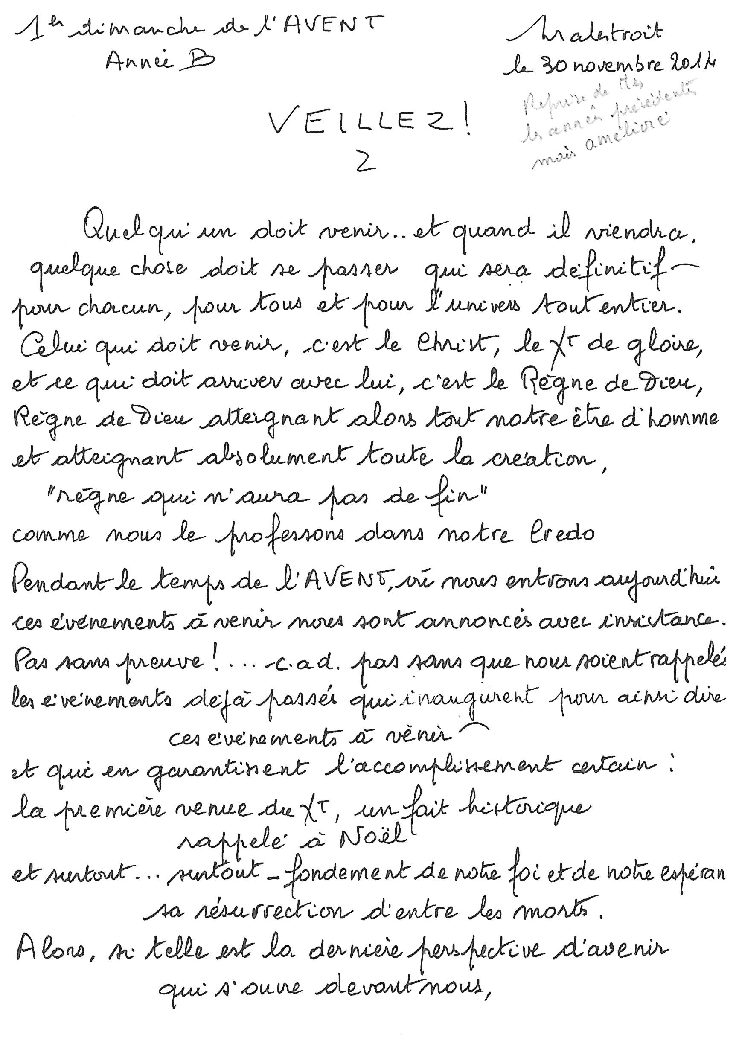 1er dimanche de l'AVENT
Année B
Malestroit
le 30 novembre 2014
Reprise de
les années précédentes
mais amélioré
VEILLEZ!
2
Quelqu'un doit venir.. et quand il viendra,
quelque chose doit se passer qui sera définitif
pour chacun, pour tous et pour l'univers tout entier.
Celui qui doit venir, c'est le Christ, le Xt de gloire,
et ce qui doit arriver avec lui, c'est le Règne de Dieu,
Règne de Dieu atteignant alors tout notre être d'homme
et atteignant absolument toute la création,
"règne qui n'aura pas de fin"
comme nous le professons dans notre Credo
Pendant le temps de l'AVENT, où nous entrons aujourd'hui
ces événements à venir nous sont annoncés avec insistance.
Pas sans preuve!... c.a.d. pas sans que nous soient rappelés
les événements déjà passés qui inaugurent pour ainsi dire
ces événements à venir
et qui en garantissent l'accomplissement certain :
la première venue du XT, un fait historique
rappelé à Noël
et surtout... surtout - fondement de notre foi et de notre espéran
sa résurrection d'entre les morts.
Alors, si telle est la dernière perspective d'avenir
qui s'ouvre devant nous,